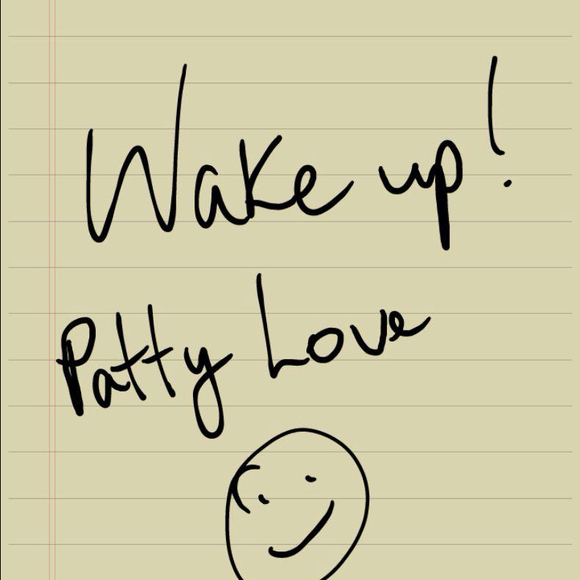 Wake up!
Patty Love